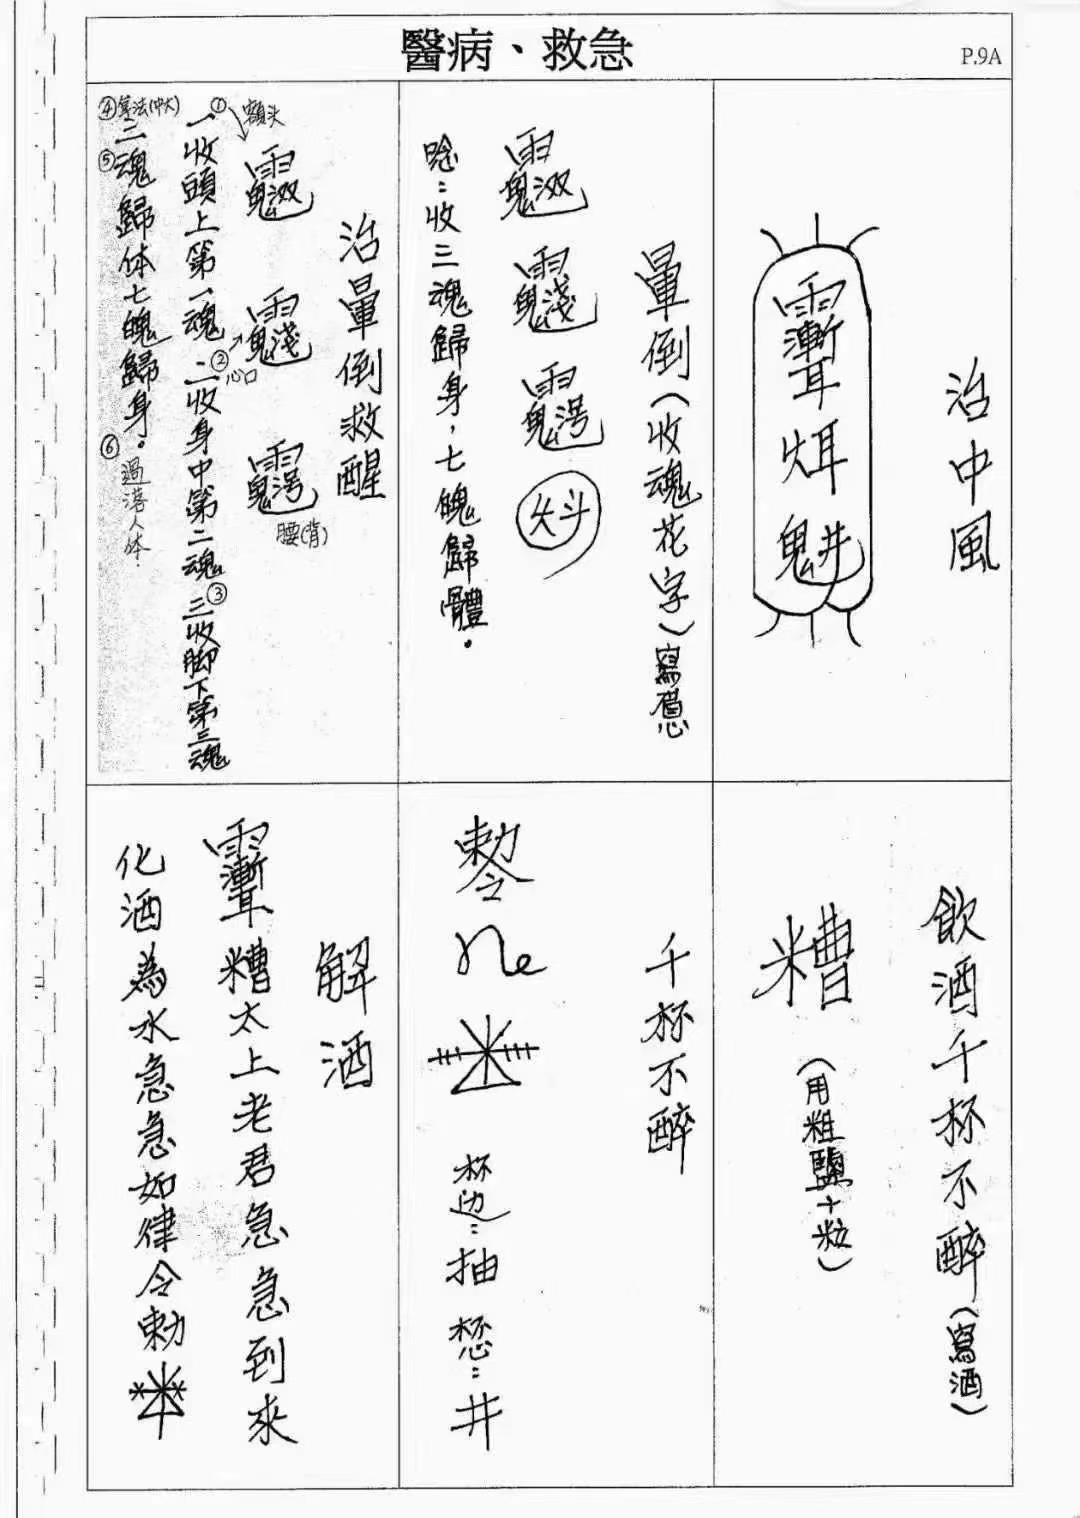 醫病、救急
P.9A
治中風
暈倒(收魂花字)寫
唸：收三魂歸身，七魄歸體。
治暈倒救醒
①
額头
②
心口
腰(背)
一收頭上第一魂 二收身中第二魂 ③ 三收脚下第三魂
④
⑤ 三魂歸体七魄歸身。
⑥ 過落人体.
飲酒千杯不醉(寫酒)
糟
(用粗鹽十粒)
千杯不醉
敕令
杯边：抽
井
解酒
糟太上老君急急到來
化酒為水急急如律令敕